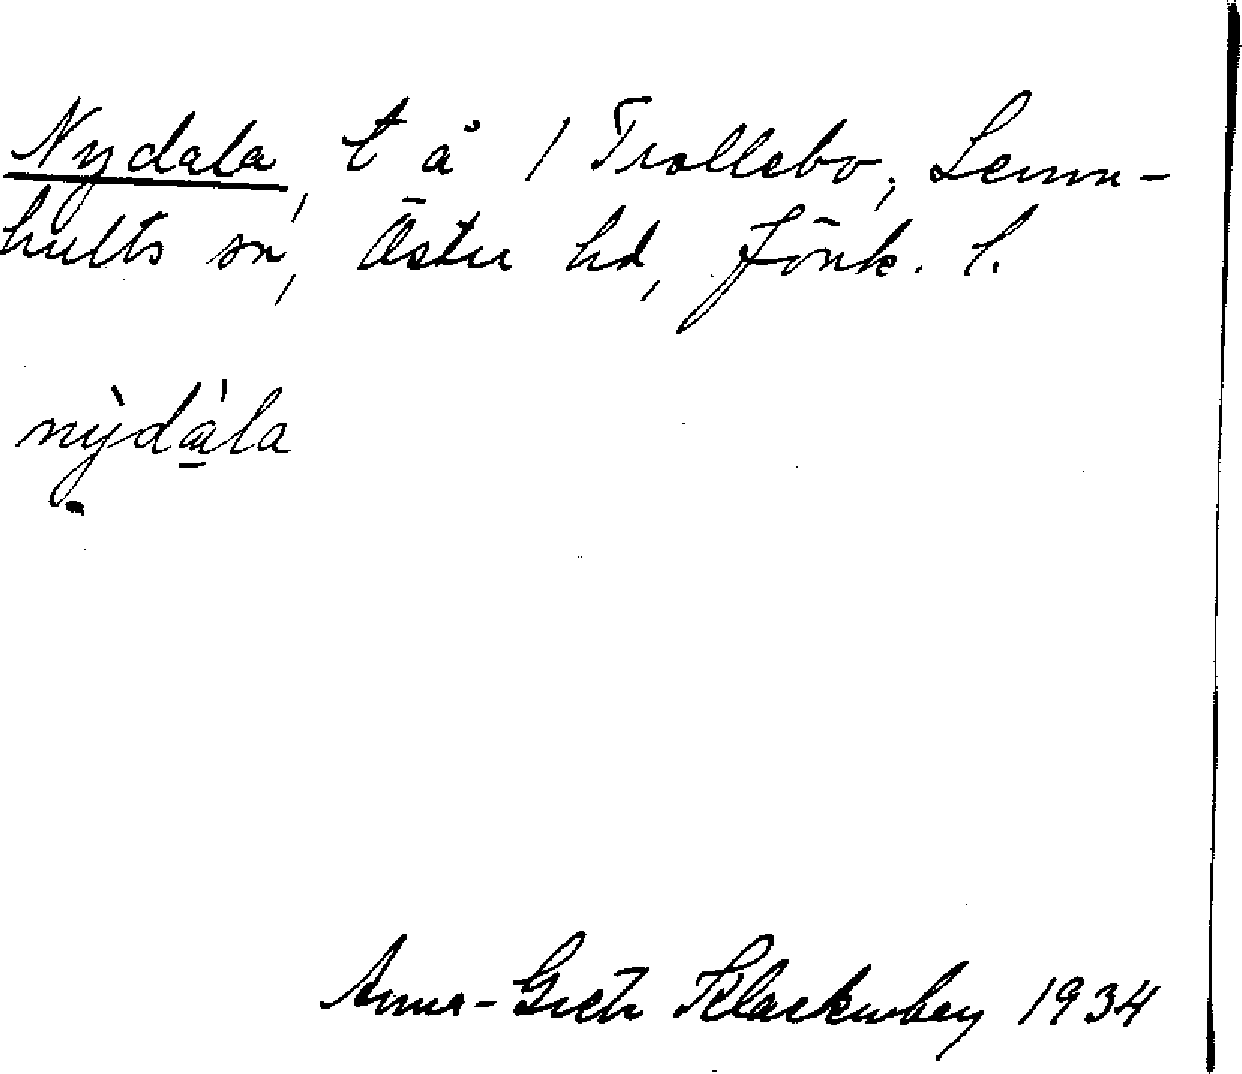 Nydala, t å 1 Trollebo, Lemn-
hults sn, Östra hd, Jönk. l.
nỳdála
Anna-Greta Klackenberg 1934